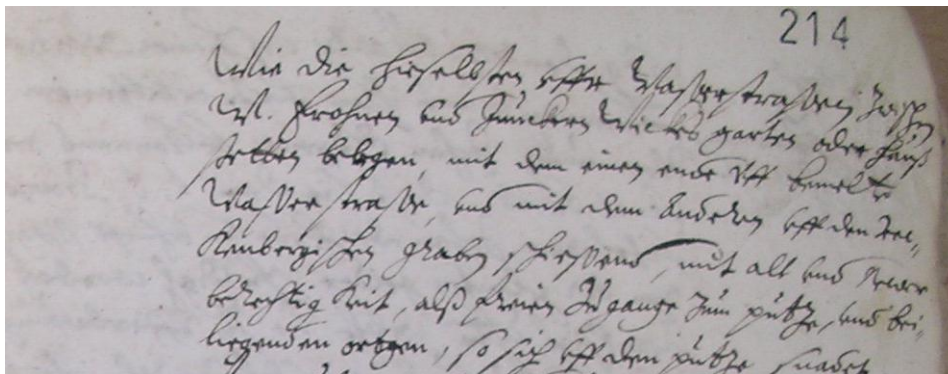 214
Wie die hieselbsten uffr Wasserstrassen zwisch
W. Frohnen und Junckern Wickes garten oder hauß
stetten belegen, mit dem einen ende uff bemelte
Wasserstrasse, und mit dem anderen uff den
kenbergischen graben schiessend, mit alt und
berechtigkeit, alß freien Zugange zum putze, und bei-
liegenden, so sich uff den putze